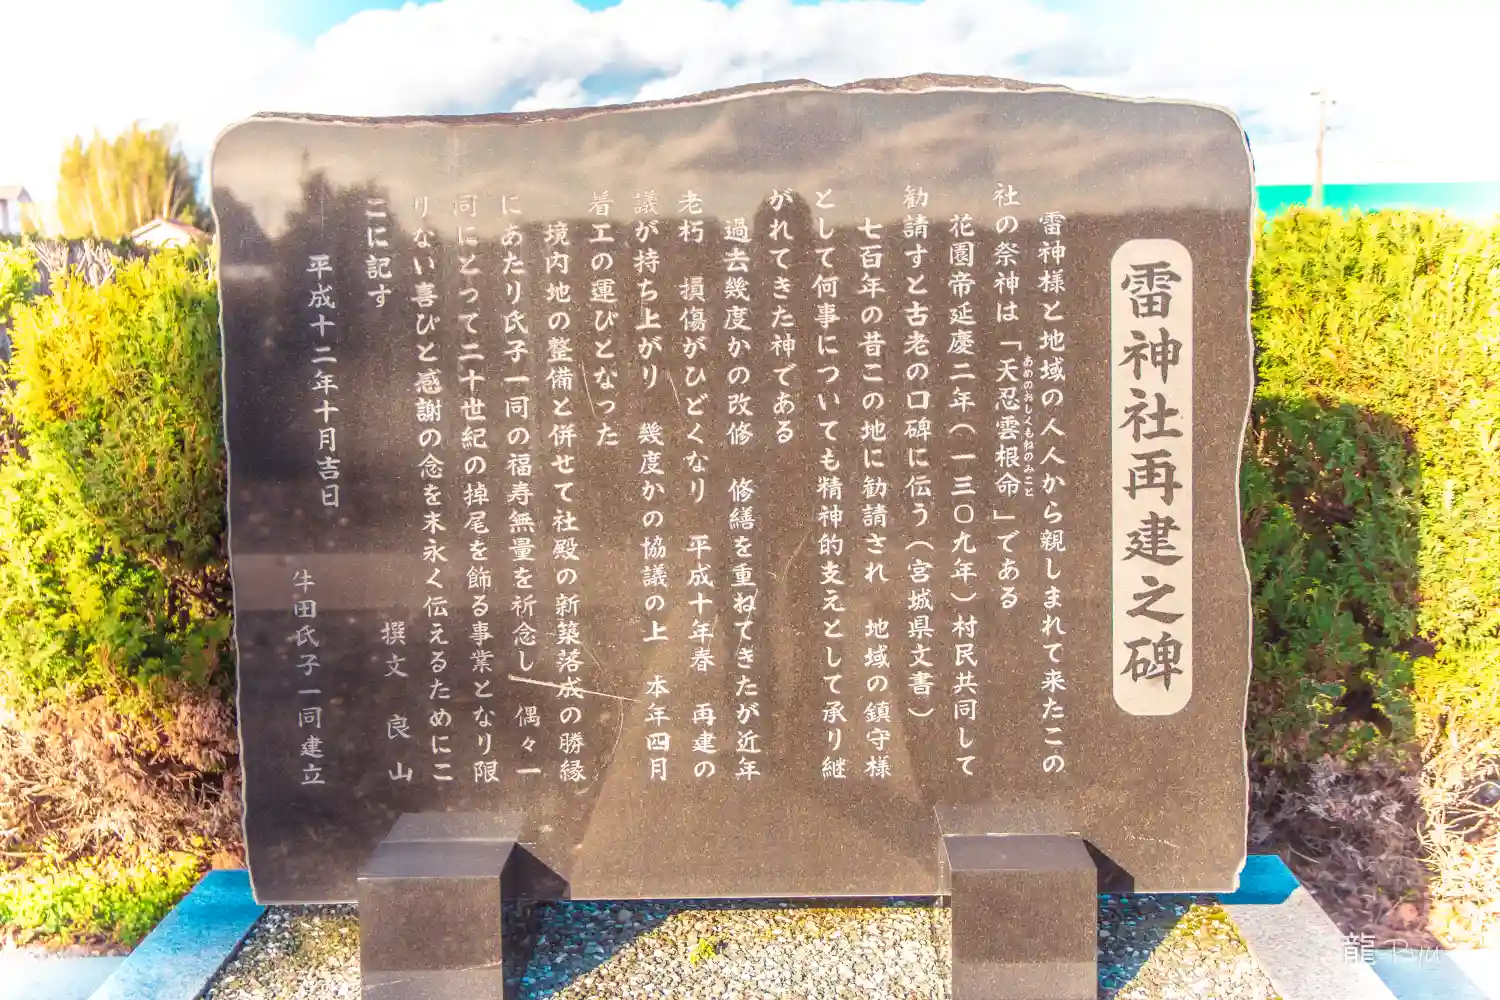 雷神社再建之碑
雷神様と地域の人人から親しまれて来たこの
社の祭神は「天忍雲根命」である
あめのおしくもねのみこと
花園帝延慶二年(一三〇九年)村民共同して
勧請すと古老の口碑に伝う(宮城県文書)
七百年の昔この地に勧請され 地域の鎮守様
として何事についても精神的支えとして承り継
がれてきた神である
過去幾度かの改修 修繕を重ねてきたが近年
老朽 損傷がひどくなり 平成十年春 再建の
議が持ち上がり 幾度かの協議の上 本年四月
着工の運びとなった
境内地の整備と併せて社殿の新築落成の勝縁
にあたり氏子一同の福寿無量を祈念し 偶々一
同にとって二十世紀の掉尾を飾る事業となり限
りない喜びと感謝の念を末永く伝えるためにこ
こに記す
撰文 良山
平成十二年十月吉日
牛田氏子一同建立
龍 Ryu